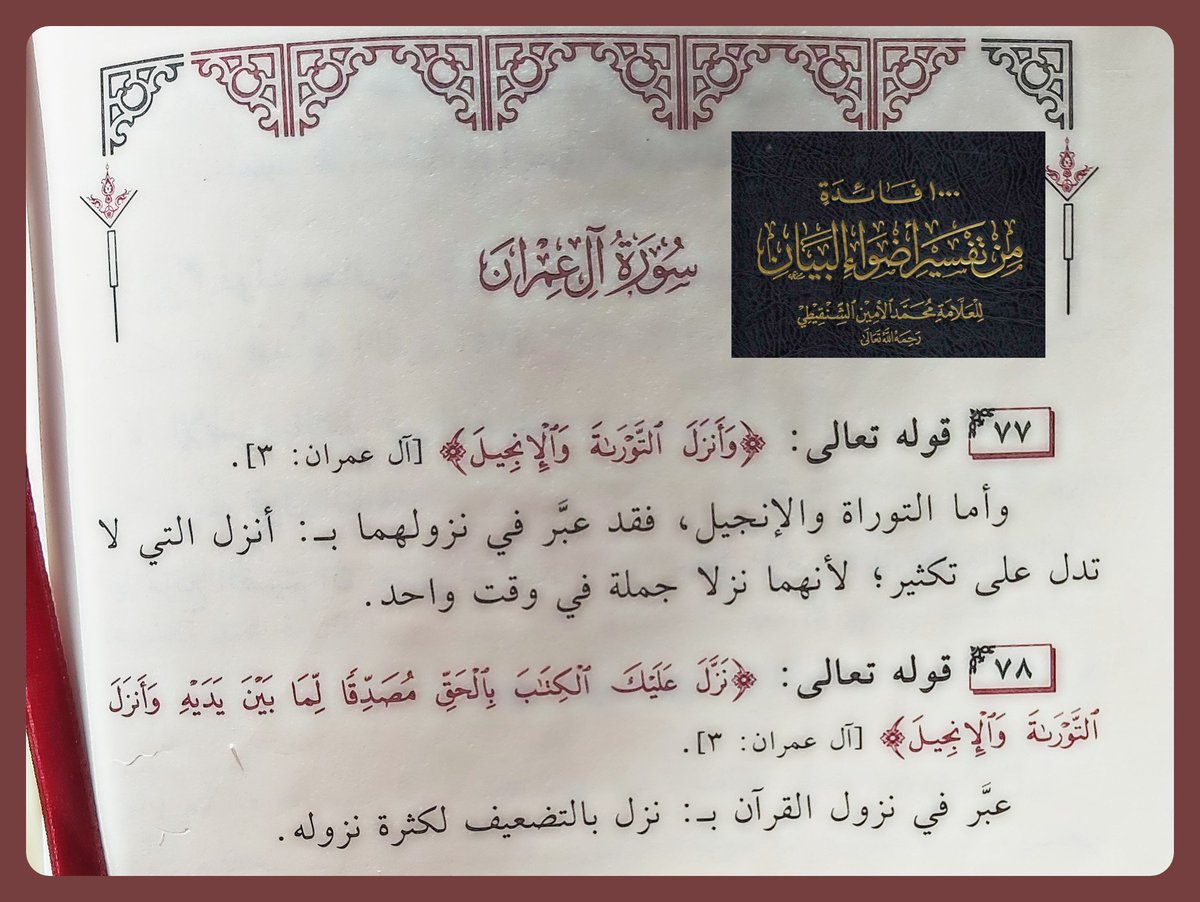 ١٠٠٠ فَائِدَةٍ
مِنْ تَفْسِيرِ أَضْوَاءِ البَيَانِ
لِلْعَلَّامَةِ مُحَمَّد الأَمِين الشِّنْقِيطِي
رَحِمَهُ اللَّهُ تَعَالَى
سُورَةُ آلِ عِمْرَانَ
٧٧ قوله تعالى: ﴿وَأَنزَلَ ٱلتَّوْرَىٰةَ وَٱلْإِنجِيلَ﴾ [آل عمران: ٣].
وأما التوراة والإنجيل، فقد عبَّر في نزولهما بـ: أنزل التي لا
تدل على تكثير؛ لأنهما نزلا جملة في وقت واحد.
٧٨ قوله تعالى: ﴿نَزَّلَ عَلَيْكَ ٱلْكِتَٰبَ بِٱلْحَقِّ مُصَدِّقًا لِّمَا بَيْنَ يَدَيْهِ وَأَنزَلَ
ٱلتَّوْرَىٰةَ وَٱلْإِنجِيلَ﴾ [آل عمران: ٣].
عبَّر في نزول القرآن بـ: نزل بالتضعيف لكثرة نزوله.